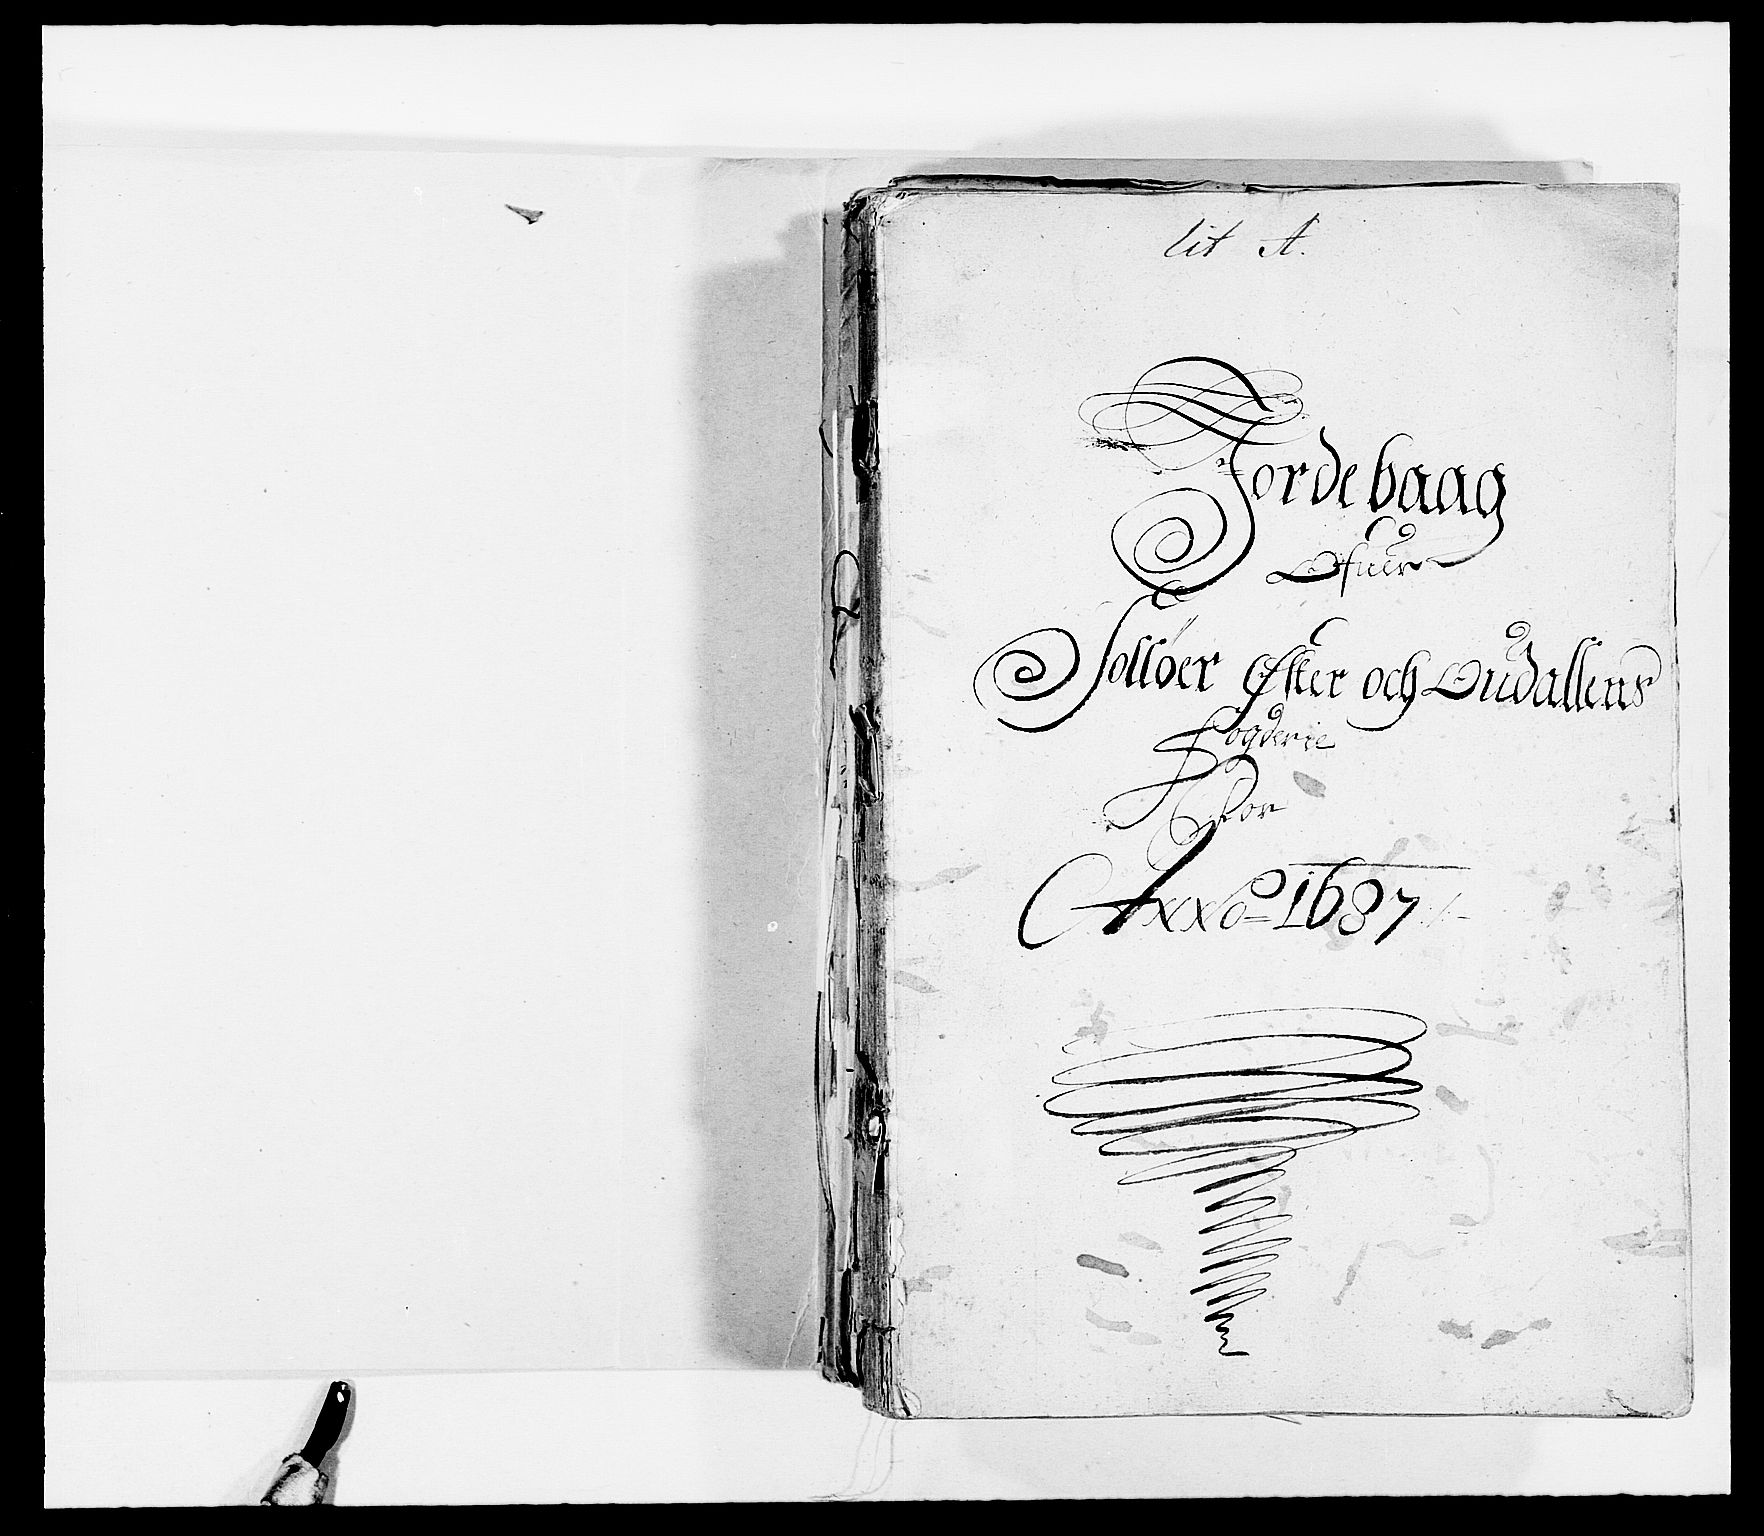 lit A.
Jordebaag
Ofuer
Solløer Øster och Oudallens
Fogderie
For
Anno 1687